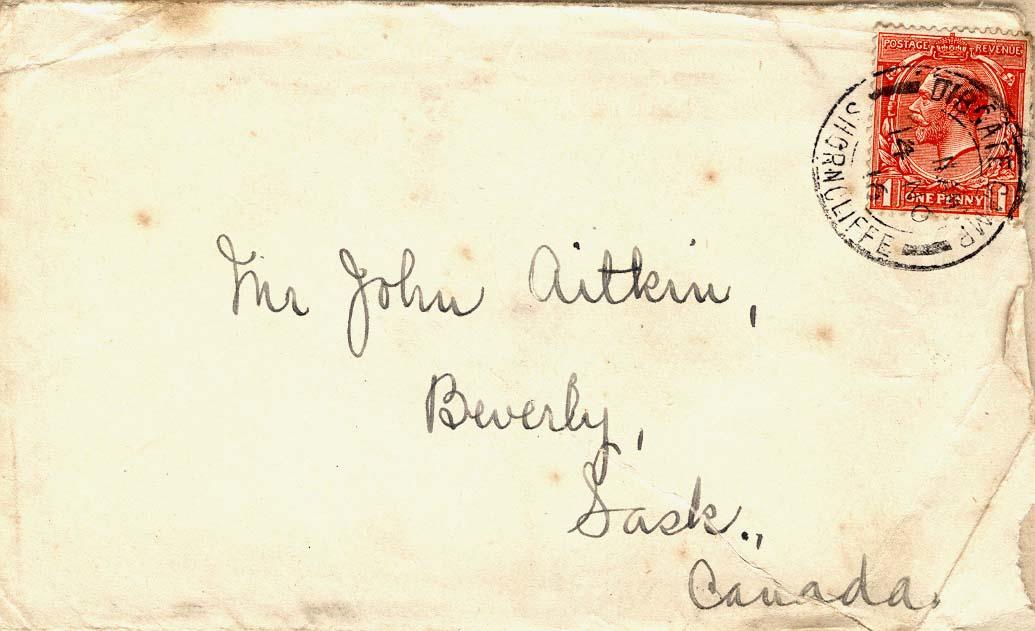 POSTAGE REVENUE
ONE PENNY
1 1
DIBGATE CAMP
SHORNCLIFFE
14
16
Mr John Aitkin,
Beverly,
Sask.,
Canada.